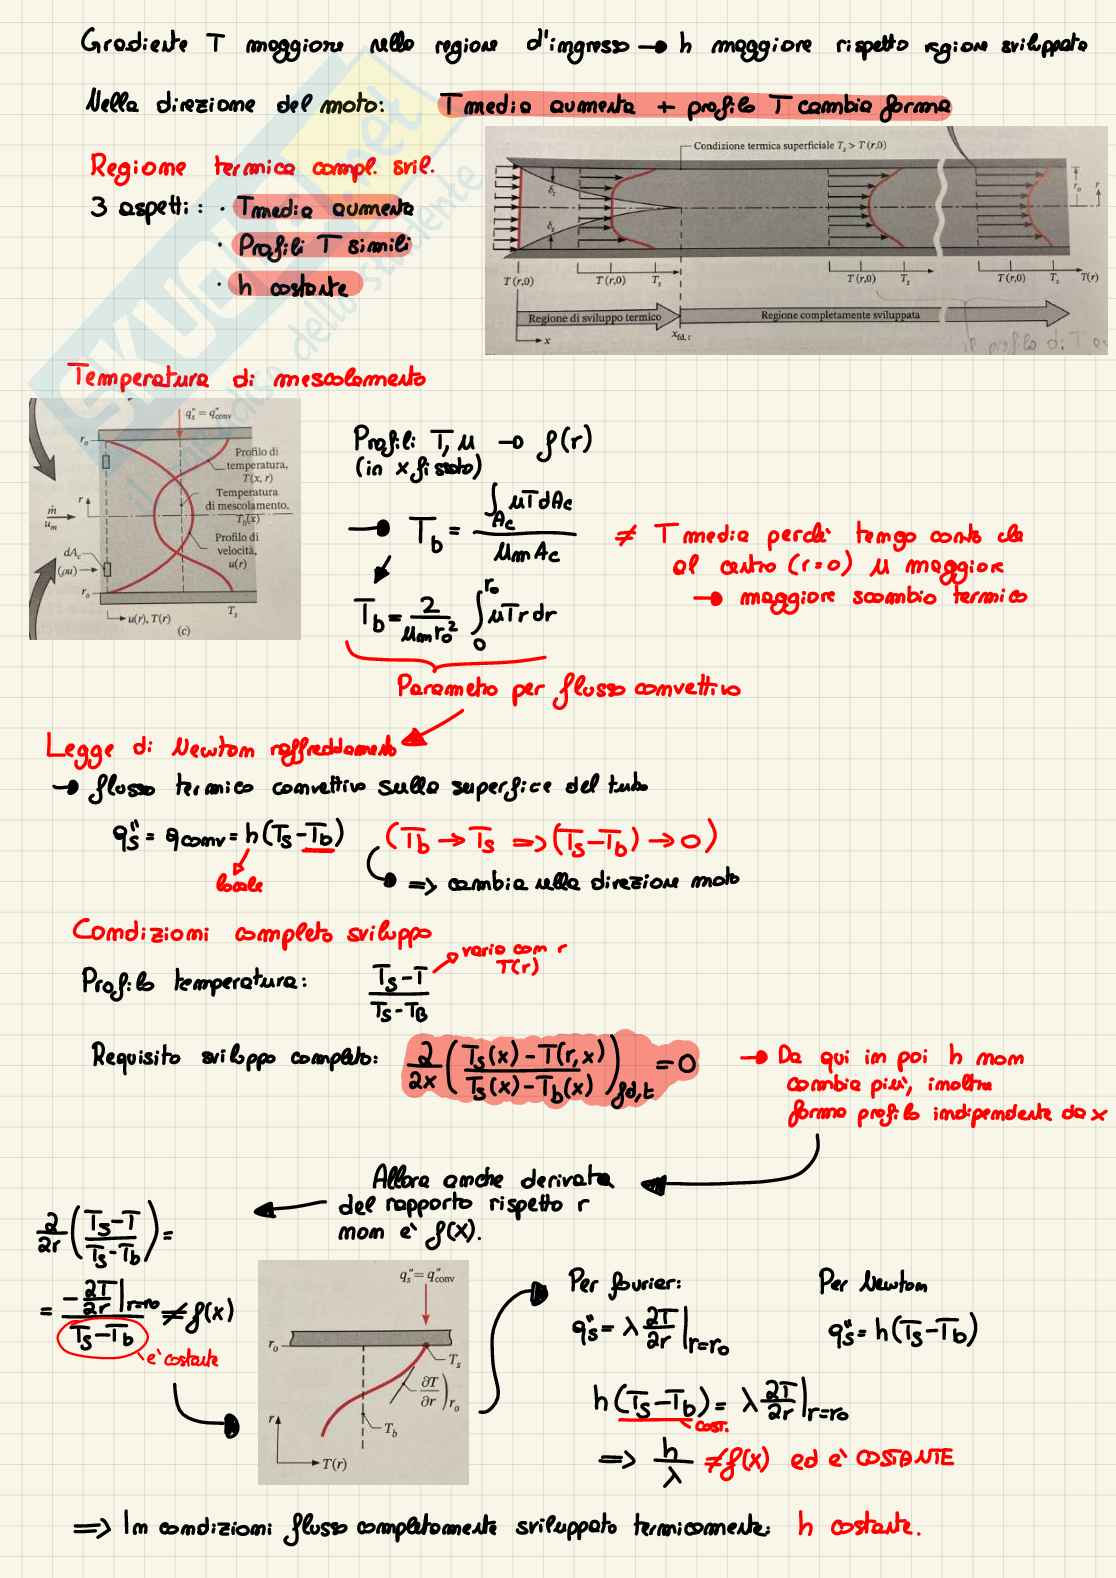 Gradiente T maggiore nella regione d'ingresso → h maggiore rispetto regione sviluppata
Nella direzione del moto: T media aumenta + profilo T cambia forma
Regione termica compl. svil.
3 aspetti: · T media aumenta
· Profili T simili
· h costante
Condizione termica superficiale Ts > T(r,0)
δt
δt
r₀
r
T(r,0)
T(r,0) Ts
T(r,0) Ts
T(r,0) Ts T(r)
Regione di sviluppo termico
Regione completamente sviluppata
x
xfd,t
SKUOLA.net
il paradiso dello studente
Temperatura di mescolamento
q″s = q″conv
r₀
Profilo di
temperatura,
T(x, r)
Temperatura
di mescolamento,
Tb(x)
Profilo di
velocità,
u(r)
r
ṁ
um
dAc
(ρu)
r₀
Ts
u(r), T(r)
(c)
Profili T, u → f(r)
(in x fissato)
→ Tb = ∫Ac uTdAc / um Ac
≠ T media perchè tengo conto che
al centro (r=0) u maggiore
→ maggiore scambio termico
Tb = 2/(um r₀²) ∫₀^r₀ uTr dr
Parametro per flusso convettivo
Legge di Newton raffreddamento
→ flusso termico convettivo sulla superfice del tubo
q″s = qconv = h(Ts-Tb) (Tb → Ts => (Ts-Tb) → 0)
locale
=> cambia nella direzione moto
Condizioni completo sviluppo
Profilo temperatura: (Ts-T)/(Ts-TB)
varia con r
T(r)
Requisito sviluppo completo: ∂/∂x ((Ts(x)-T(r,x))/(Ts(x)-Tb(x)))fd,t = 0
→ Da qui in poi h non
cambia più, inoltre
forma profilo indipendente da x
Allora anche derivata
del rapporto rispetto r
non è f(x).
∂/∂r ((Ts-T)/(Ts-Tb)) =
= (-∂T/∂r|r=r₀)/(Ts-Tb) ≠ f(x)
è costante
q″s = q″conv
r₀
Ts
∂T/∂r)r₀
r
Tb
T(r)
Per fourier:
q″s = λ ∂T/∂r|r=r₀
Per Newton
q″s = h(Ts-Tb)
h(Ts-Tb) = λ ∂T/∂r|r=r₀
cost.
=> h/λ ≠ f(x) ed è COSTANTE
=> In condizioni flusso completamente sviluppato termicamente: h costante.